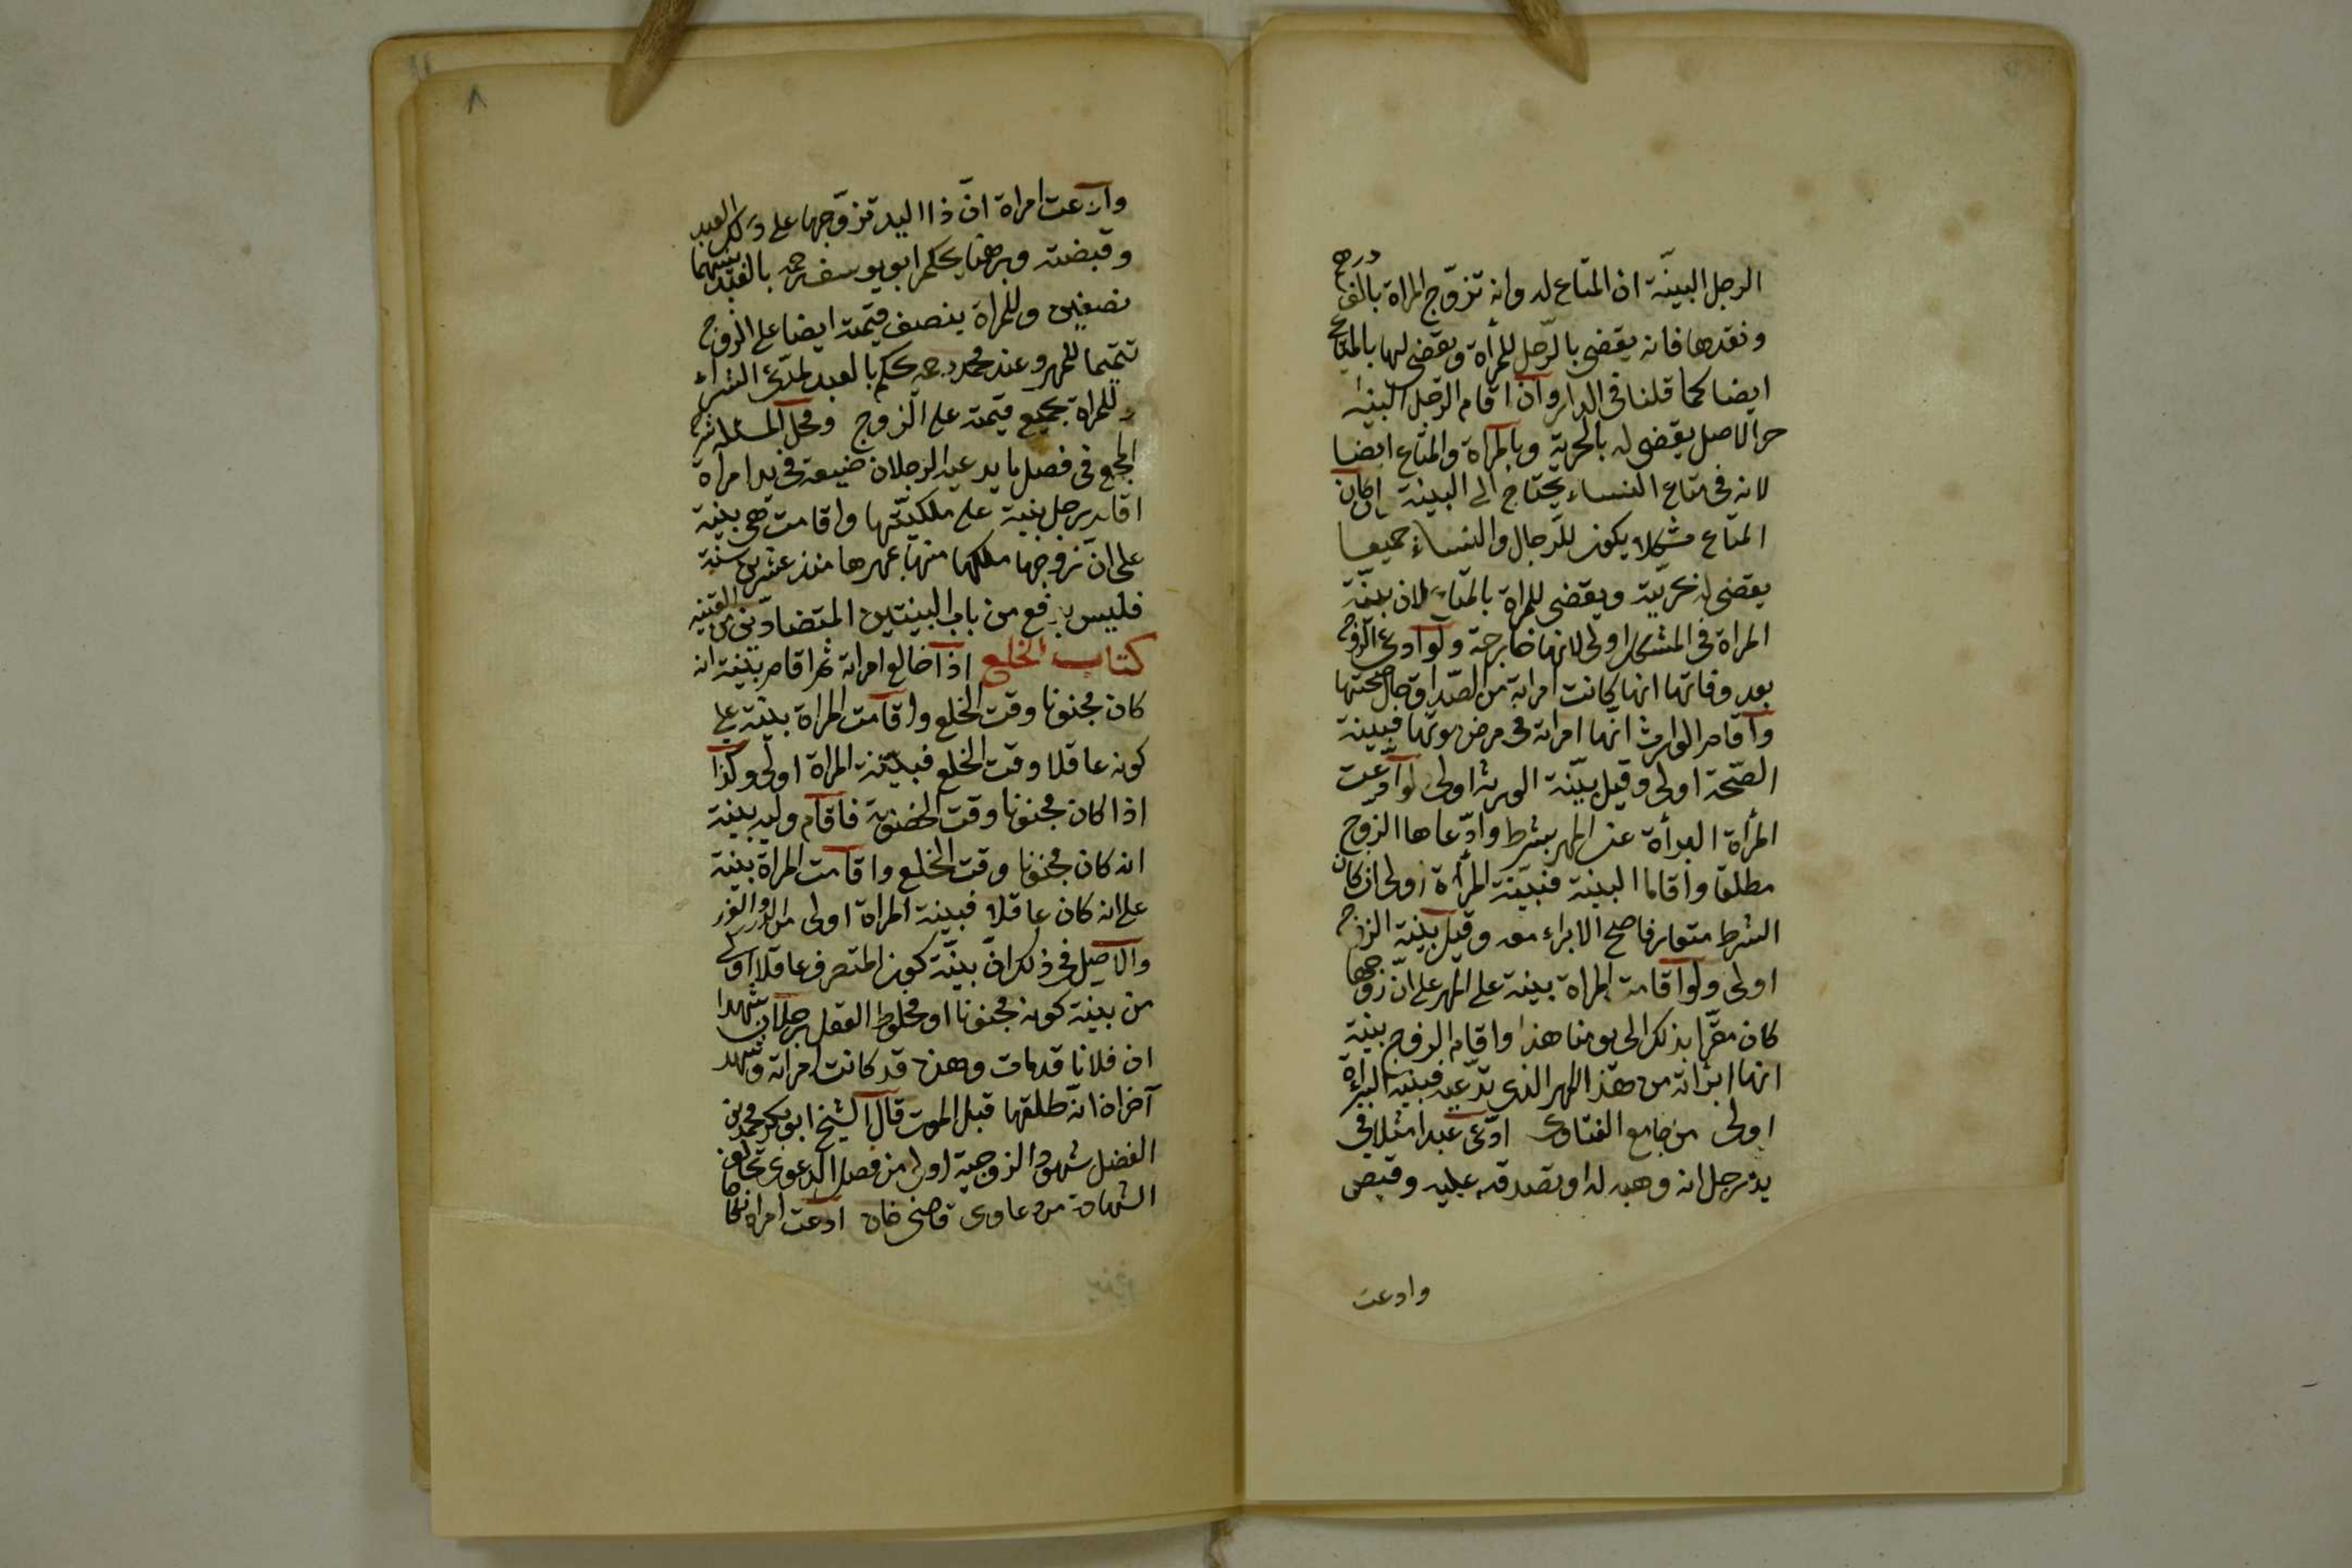 الرجل البينّة ان المتاع له وانه تزوّج المراة بالف درهم
ونقدها فانه يقضى بالرّجل للمرأة ويقضى لها بالمتاع
ايضا كما قلنا فى الدار وان اقام الرّجل البينة
حر الاصل يقضى له بالحرية وبالمراة والمتاع ايضا
لانه فى متاع النساء يحتاج الى البينة ان كان
المتاع مشكلا يكون للرّجال والنساء جميعا
يقضى له بحريّته ويقضى للمراة بالمتاع لان بينّة
المراة فى المشكل اولى لانها خارجة ولو ادعى الزوج
بعد وفاتها انها كانت ابراته من الصّداق حال صحتها
واقام الوارث انها ابراته فى مرض موتها فبينة
الصّحة اولى وقيل بيّنة الورثة اولى لو ادّعت
المرأة البرأة عن المهر بشرط وادّعاها الزوج
مطلقا واقاما البينة فبيّنة المرأة اولى ان كان
الشرط متعارفا صح الابراء معه وقيل بيّنة الزوج
اولى ولو اقامت المراة بينة على المهر على انّ زوجها
كان مقرّا بذلك الى يومنا هذا واقام الزوج بينة
انها ابرأته من هذا المهر الذى تدّعيه فبينة البراءة
اولى من جامع الفتاوى ادّعى عبدا مثلا فى
يد رجل انه وهبه له او تصدقه عليه وقبض
وادعت
٨
وادّعت امراة انّ ذا اليد تزوّجها على ذلك العبد
وقبضته وبرهنا يحكم ابو يوسف رحمه بالعبد بينهما
نصفين وللمراة بنصف قيمته ايضا على الزوج
تتميما للمهر وعند محمد رحمه حكم بالعبد لمدّعى الشراء
وللمراة بجميع قيمته على الزوج ومحل المسئلة شرح
المجمع فى فصل ما يدعيه الرجلان ضيعة فى يد امرأة
اقام رجل بينة على ملكيّتها واقامت هى بينة
على ان زوجها ملكها منها بمهرها منذ عشرين سنة
فليس بدفع من باب البينتين المتضادّتين من القنية
كتاب الخلع اذا خالع امراته ثم اقام بيّنة انه
كان مجنونا وقت الخلع واقامت المراة بينة على
كونه عاقلا وقت الخلع فبيّنة المراة اولى وكذا
اذا كان مجنونا وقت الخصومة فاقام وليه بينة
انه كان مجنونا وقت الخلع واقامت المراة بينة
على انه كان عاقلا فبينة المراة اولى من الدرر والغرر
والاصل فى ذلك انّ بينّة كون المتصرف عاقلا اولى
من بينة كونه مجنونا او مخلوط العقل رجلان شهدا
ان فلانا قد مات وهذه قد كانت امراته وشهد
آخران انّه طلقها قبل الموت قال الشيخ ابو بكر محمد بن
الفضل شهود الزوجية اولى من فصل الدعوى تخالف
الشهادة من دعاوى قاضى خان ادعت امراة نكاحا